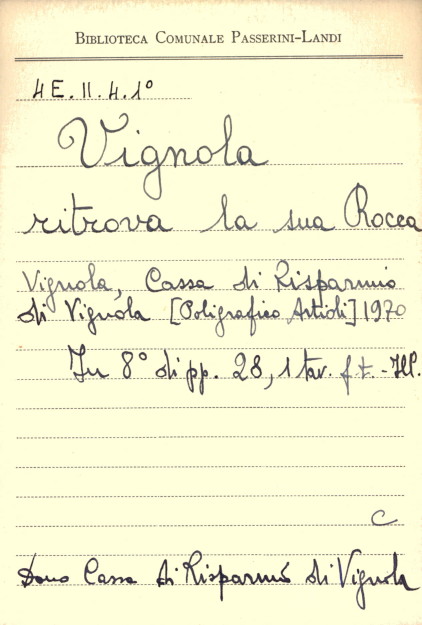 BIBLIOTECA COMUNALE PASSERINI-LANDI
4 E. II. 4. 1°
Vignola
ritrova la sua Rocca
Vignola, Cassa di Risparmio
di Vignola [Poligrafico Artioli] 1970
In 8° di pp. 28, 1 tav. f.t. - Ill.
C
Dono Cassa di Risparmio di Vignola